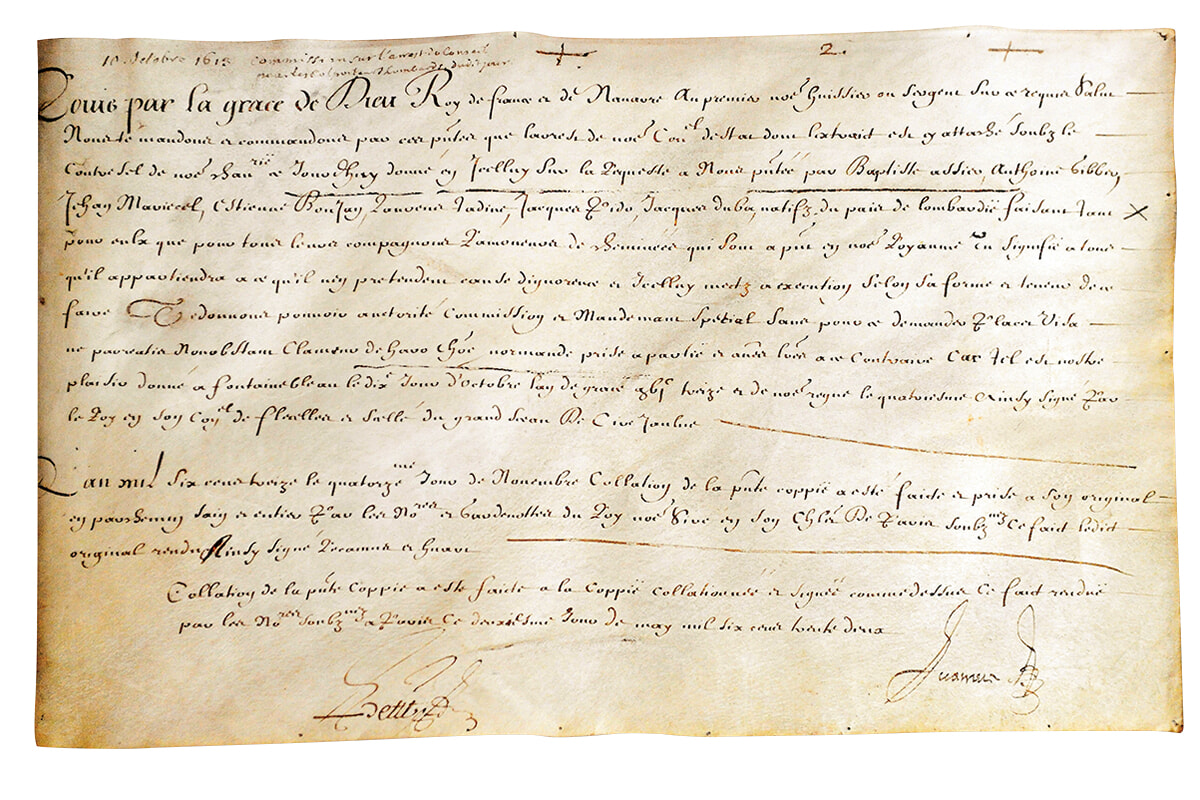 10 Octobre 1613 Commission sur l'arrest du Conseil
2
Louis par la grace de Dieu Roy de france et de Navarre Au premier nõe huissier ou sergent sur ce requis Salut
Nous te mandons et commandons par ces pñtes que l'arrest de nõe Con.el destat dont lextrait est cy attaché soubz le
Contresel de nõe chan.rie ce jourdhuy donné en Jcelluy sur la Requeste a Nous pñtée par Baptiste assice, Anthoine Gibber,
Jehan Mariecel, Estienne Bonjan, Laurens Tadine, Jacques Pido, Jacques dubas, natifz du pais de lombardie faisant tant
pour eulx que pour tous leurs compagnons Ramoneurs de cheminées qui sont a pñt en nõe Royaume Tu signifie a tous
qu'il appartiendra a ce qu'il n'en pretendent cause dignorence et Jcelluy metz a execution selon sa forme et teneur de ce
faire Te donnons pouvoir auctorité Commission et Mandement special sans pour ce demander Placet Visa
ne pareatis Nonobstant Clameur de haro Chře normande prise a partie et aues lřes a ce Contraire Car tel est nostre
plaisir donné a fontainebleau le dix.e Jour d'Octobre l'an de grace treize et de nõe regne le quatriesme Ainsy signé Par
le Roy en son Con.el de flecelles et sellé du grand sceau De Cire Jaulne
L'an mil six cens treize le quatorze.me Jour de Novembre Collation de la pñte coppie a esté faite et prise a son original
en parchemin sain et entier Par les No.res et Gardenottes du Roy nõe Sire en son Chlet De Paris soubz.nez Ce fait ledict
original rendu Ainsy signé Lecamus et huart
Collation de la pñte Coppie a esté faicte a la Coppie collationnée et signée comme dessus Ce fait rendue
par les No.res soubz.nez a Paris Ce deuxiesme Jour de may mil six cens trente deux